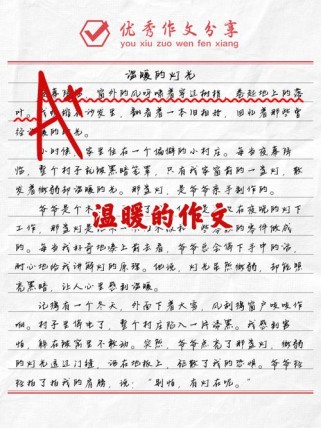 优秀作文分享
you xiu zuo wen fen xiang
温暖的灯光
A+
窗外的风呼啸着穿过树梢，卷起地上的落
叶。我蜷缩在沙发里，翻看着一本旧相册，回忆着那些曾
经温暖的灯光。
小时候，家里住在一个偏僻的小村庄。每当夜幕降
临，整个村子就被黑暗笼罩，只有我家窗前的一盏灯，散
发着微弱却温暖的光。那盏灯，是爷爷亲手制作的。
爷爷是个木
在夜晚的灯下
工作，那盏灯是
零件做成
的。每当我好奇地凑上前去看，爷爷总会停下手中的活，
耐心地给我讲解灯的原理。他说，灯光虽然微弱，却能照
亮黑暗，让人心里感到温暖。
温暖的作文
记得有一个冬天，外面下着大雪，风刮得窗户吱吱作
响。村子里停电了，整个村庄陷入一片漆黑。我感到害
怕，躲在被窝里不敢动。突然，爷爷点亮了那盏灯，微弱
的灯光透过门缝，洒在地板上，驱散了我的恐惧。爷爷轻
轻拍了拍我的肩膀，说：“别怕，有灯在呢。”